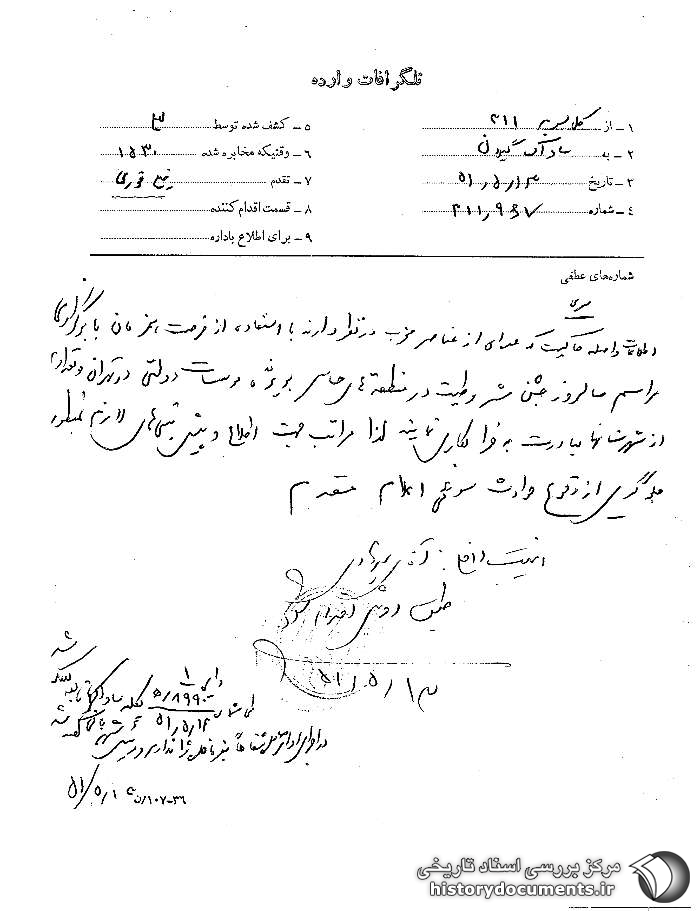 تلگرافات وارده
۱ـ از ۳۱۱
۲ـ به ساواک گیلان
۳ـ تاریخ ۵۱/۵/۱۳
۴ـ شماره ۳۱۱/۹۶۷
۵ـ کشف شده توسط
۶ـ وقتیکه مخابره شده ۱۵۳۰
۷ـ تقدم خیلی فوری
۸ـ قسمت اقدام کننده
۹ـ برای اطلاع باداره
شماره‌های عطفی
سری
اطلاعات واصله حاکیست که عده‌ای از عناصر مخرب در نظر دارند با استفاده از فرصت همزمان با برگزاری
مراسم سالروز جشن مشروطیت در منطقه‌های حساس بویژه موسسات دولتی در تهران و تعدادی
از شهرستانها مبادرت به خرابکاری نمایند لذا مراتب جهت اطلاع و پیش‌بینی‌های لازم بمنظور
جلوگیری از وقوع حوادث سوء اعلام مقدم
امنیت داخلی: آقای
طبق روش اقدام شود
۵۱/۵/۱۳
۵۱/۵/۱۴
۳۶-۱۰۷
مرکز بررسی اسناد تاریخی
historydocuments.ir